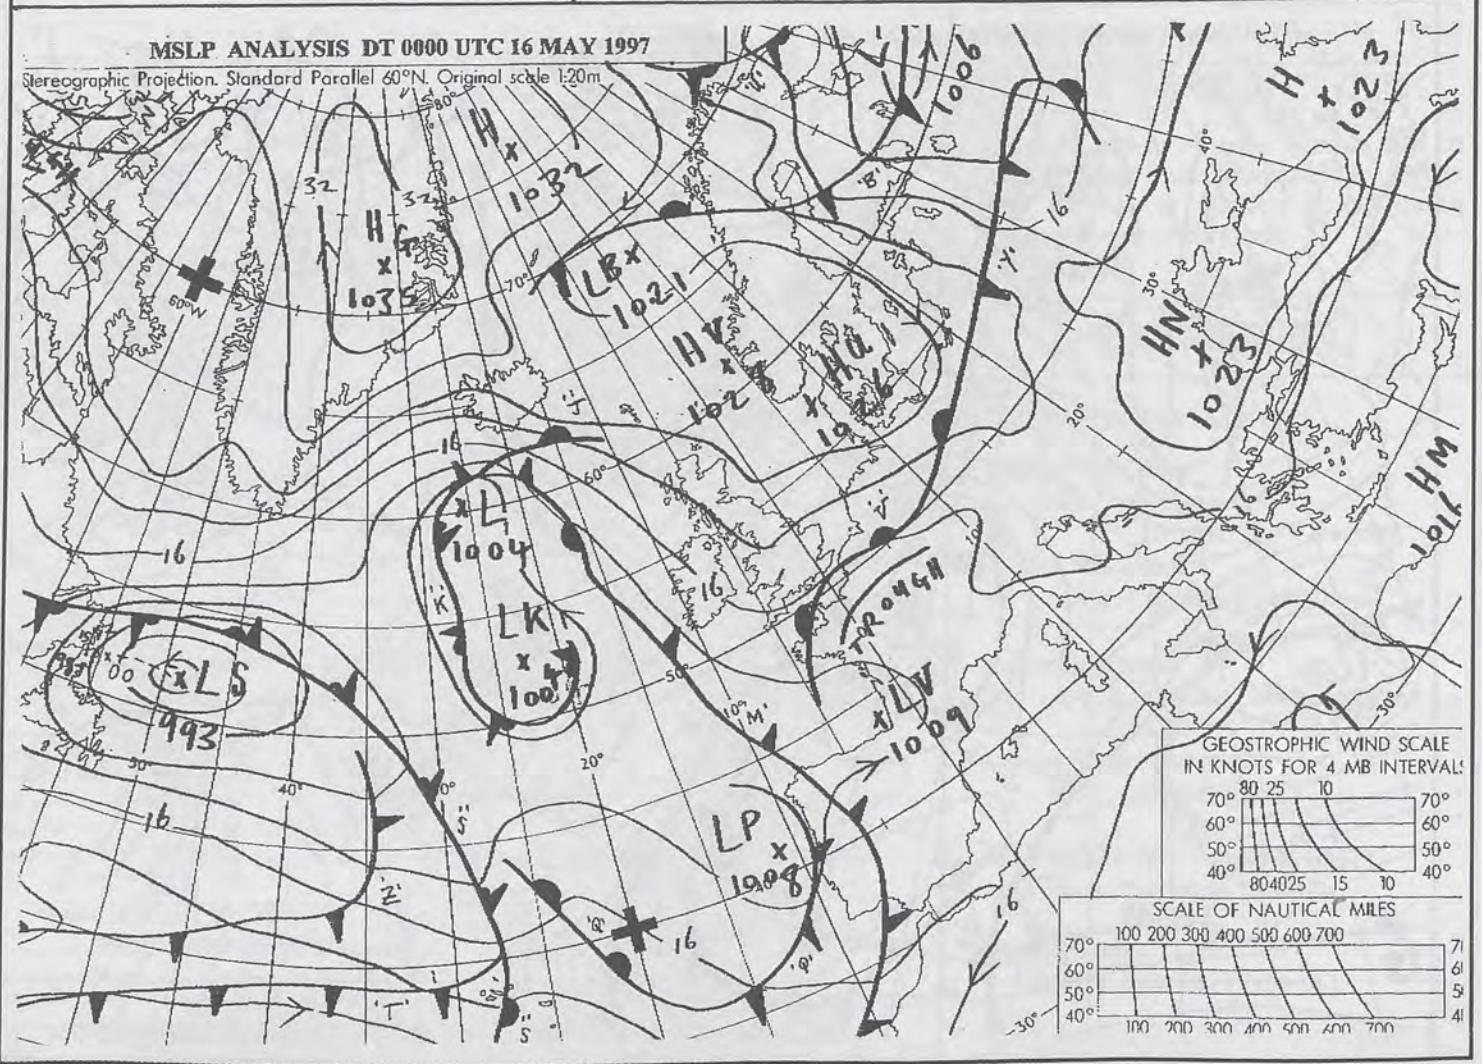 MSLP ANALYSIS DT 0000 UTC 16 MAY 1997
Stereographic Projection. Standard Parallel 60°N. Original scale 1:20m
80°
H
1032
1006
H
1023
40°
32
32
H
G
1035
'B'
16
'Y'
60°W
70°
LB
1021
30°
HV
1028
HU
1026
HN
1023
20°
16
HM
1016
16
60°
L
1004
'V'
10°
16
16
'K'
LK
1004
TOROUGH
50°
LS
993
'M'
LV
1009
30°
50°
40°
20°
16
'S'
LP
1008
'Z'
'Q'
16
'Q'
16
'T'
'S'
30°
GEOSTROPHIC WIND SCALE
IN KNOTS FOR 4 MB INTERVALS
80 25 10
70° 70°
60° 60°
50° 50°
40° 40°
80 40 25 15 10
SCALE OF NAUTICAL MILES
100 200 300 400 500 600 700
70°
60°
50°
40°
100 200 300 400 500 600 700